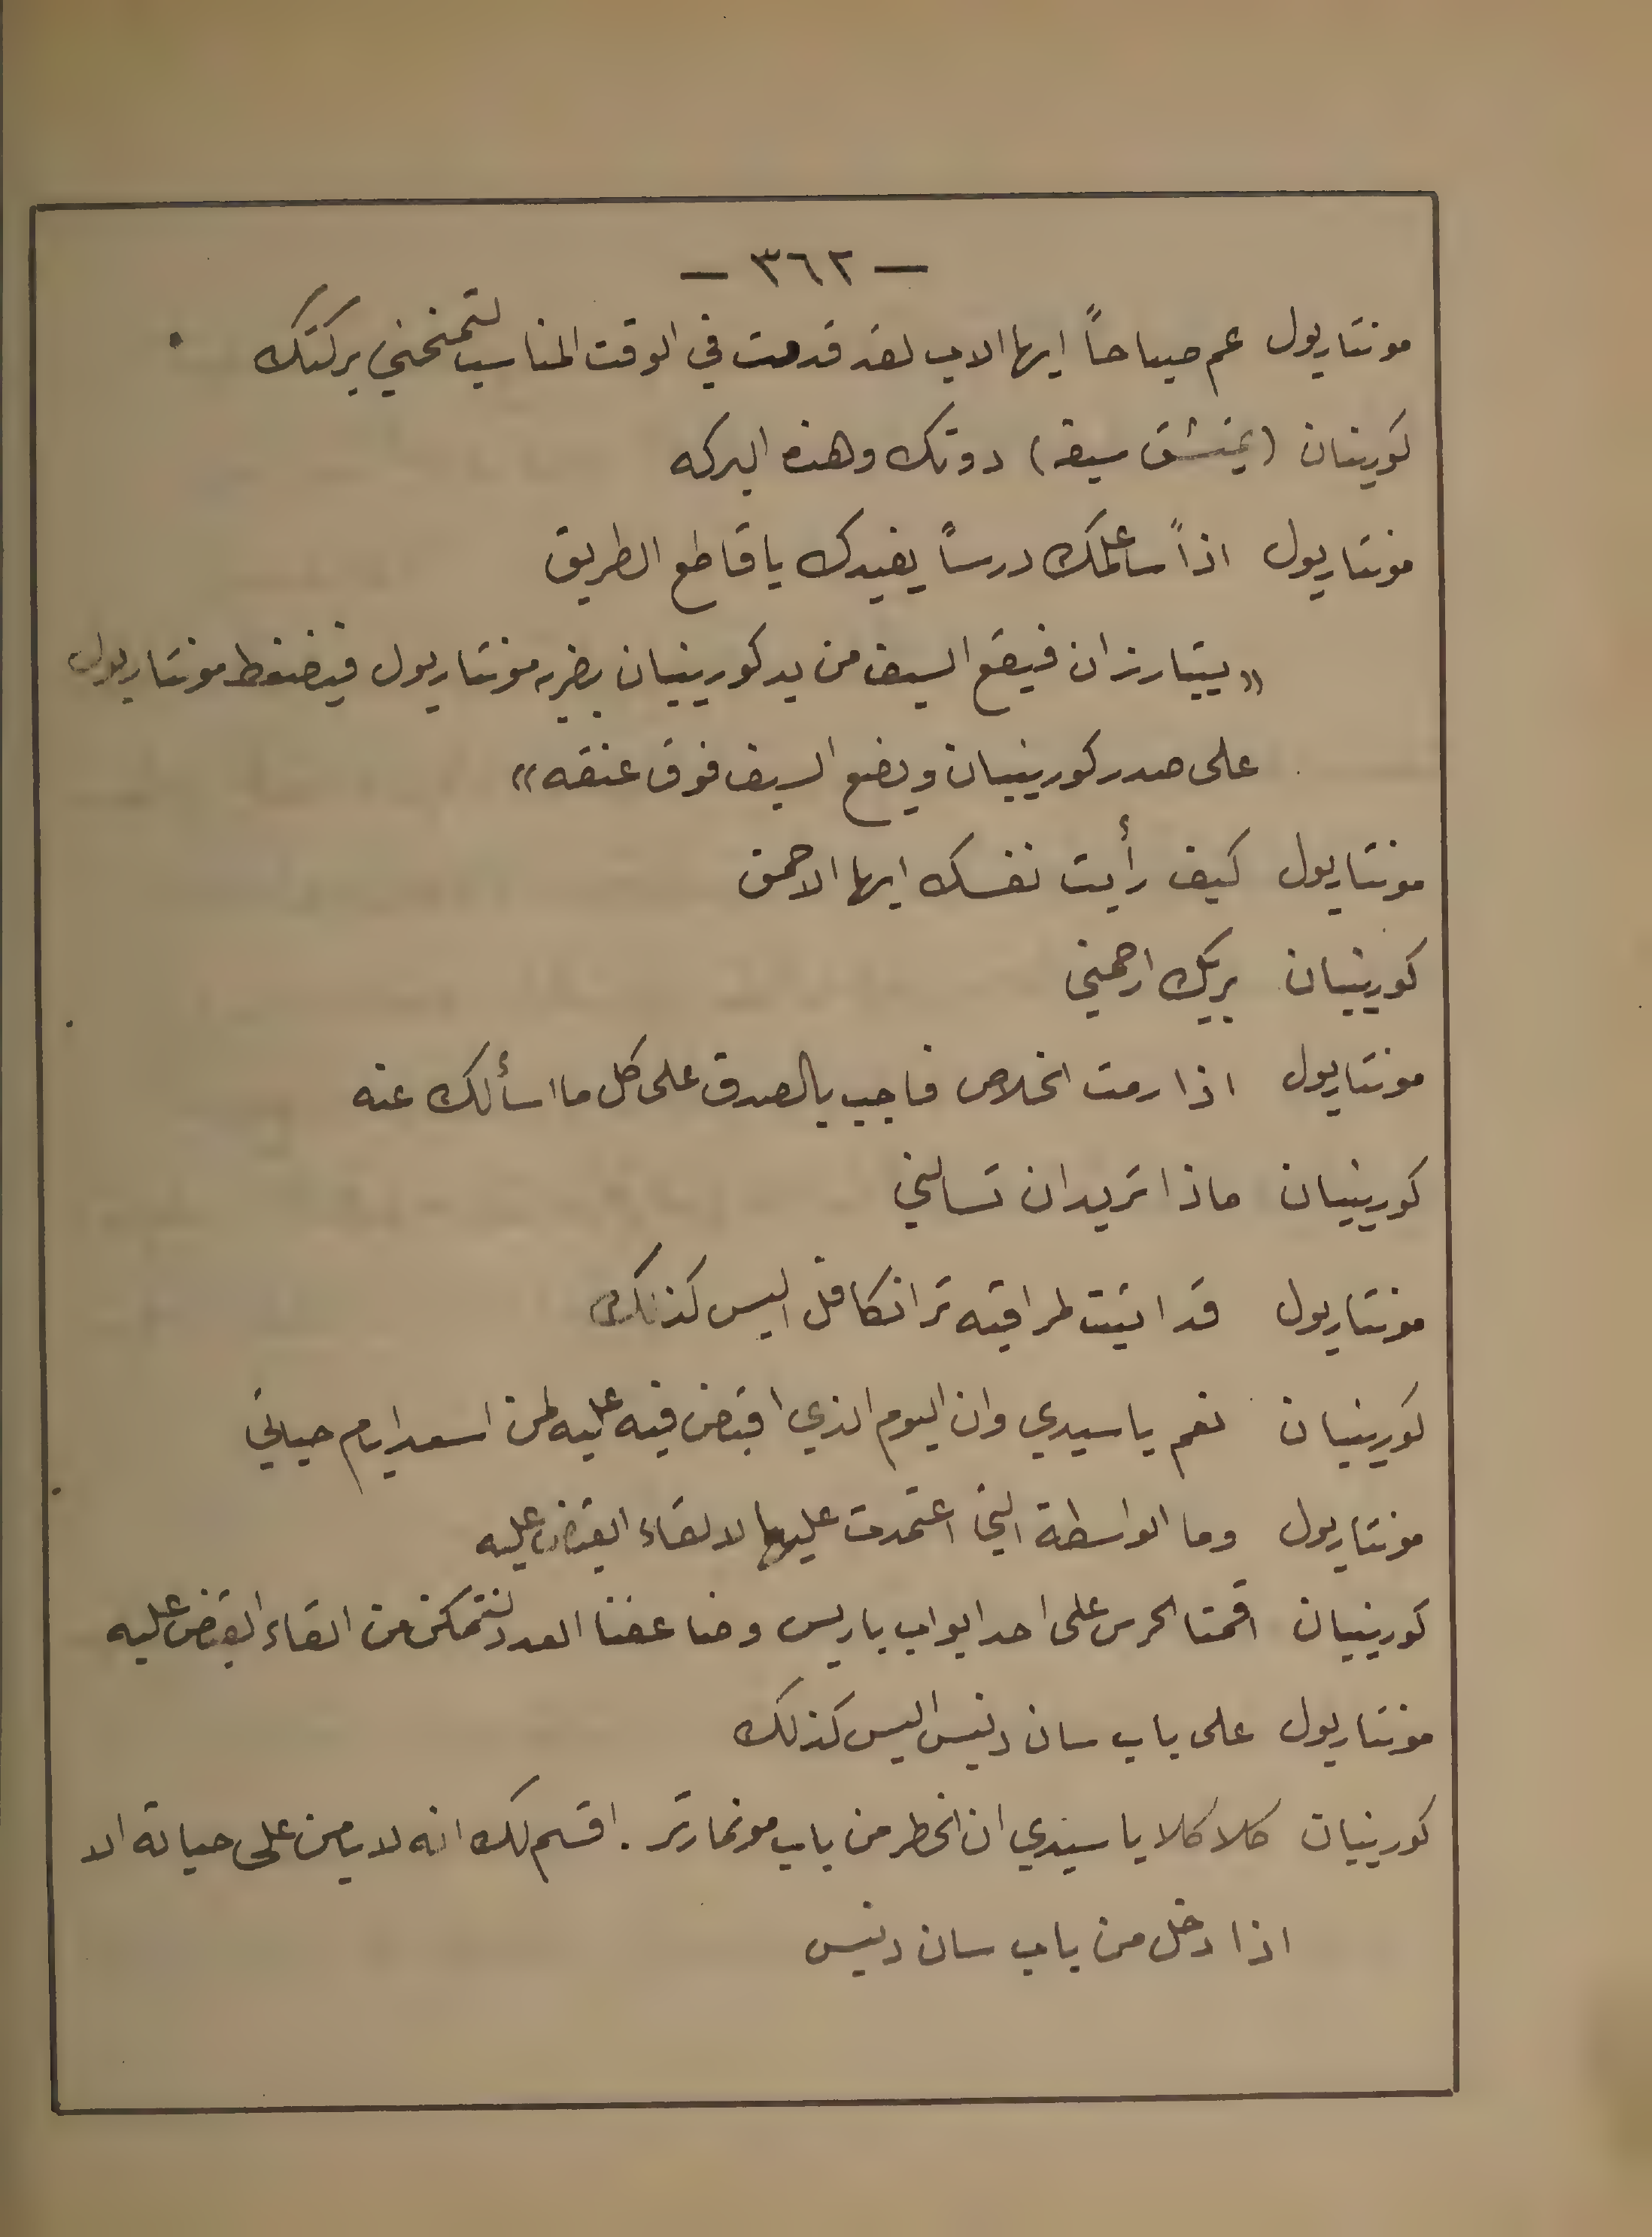 — ٣٦٢ —
مونتاريول عم صباحاً ايها الاب لقد قدمت في الوقت المناسب لتمنحني بركتك
كورينيان (يمتشق سيفه) دونك وهذه البركه
مونتاريول اذاً سأعلمك درساً يفيدك يا قاطع الطريق
«يتبارزان فيقع السيف من يد كورينيان بضربه مونتاريول فيضغط مونتاريول
على صدر كورينيان ويضع السيف فوق عنقه»
مونتاريول كيف رأيت نفسك ايها الاحمق
كورينيان بربك ارحمني
مونتاريول اذا رمت الخلاص فاجب بالصدق على كل ما اسألك عنه
كورينيان ماذا تريد ان تسالني
مونتاريول قد اتيت لمراقبه ترانكافل اليس كذلك
كورينيان نعم يا سيدي وان اليوم الذي اقبض فيه عليه لمن اسعد ايام حياتي
مونتاريول وما الواسطة التي اعتمدت عليها لالقاء القبض عليه
كورينيان اقمنا الحرس على احد ابواب باريس وضاعفنا العدد لنتمكن من القاء القبض عليه
مونتاريول على باب سان دنيس اليس كذلك
كورينيان كلا كلا يا سيدي ان الخطر من باب مونمارتر . اقسم لك انه لا يامن على حياته الا
اذا دخل من باب سان دنيس